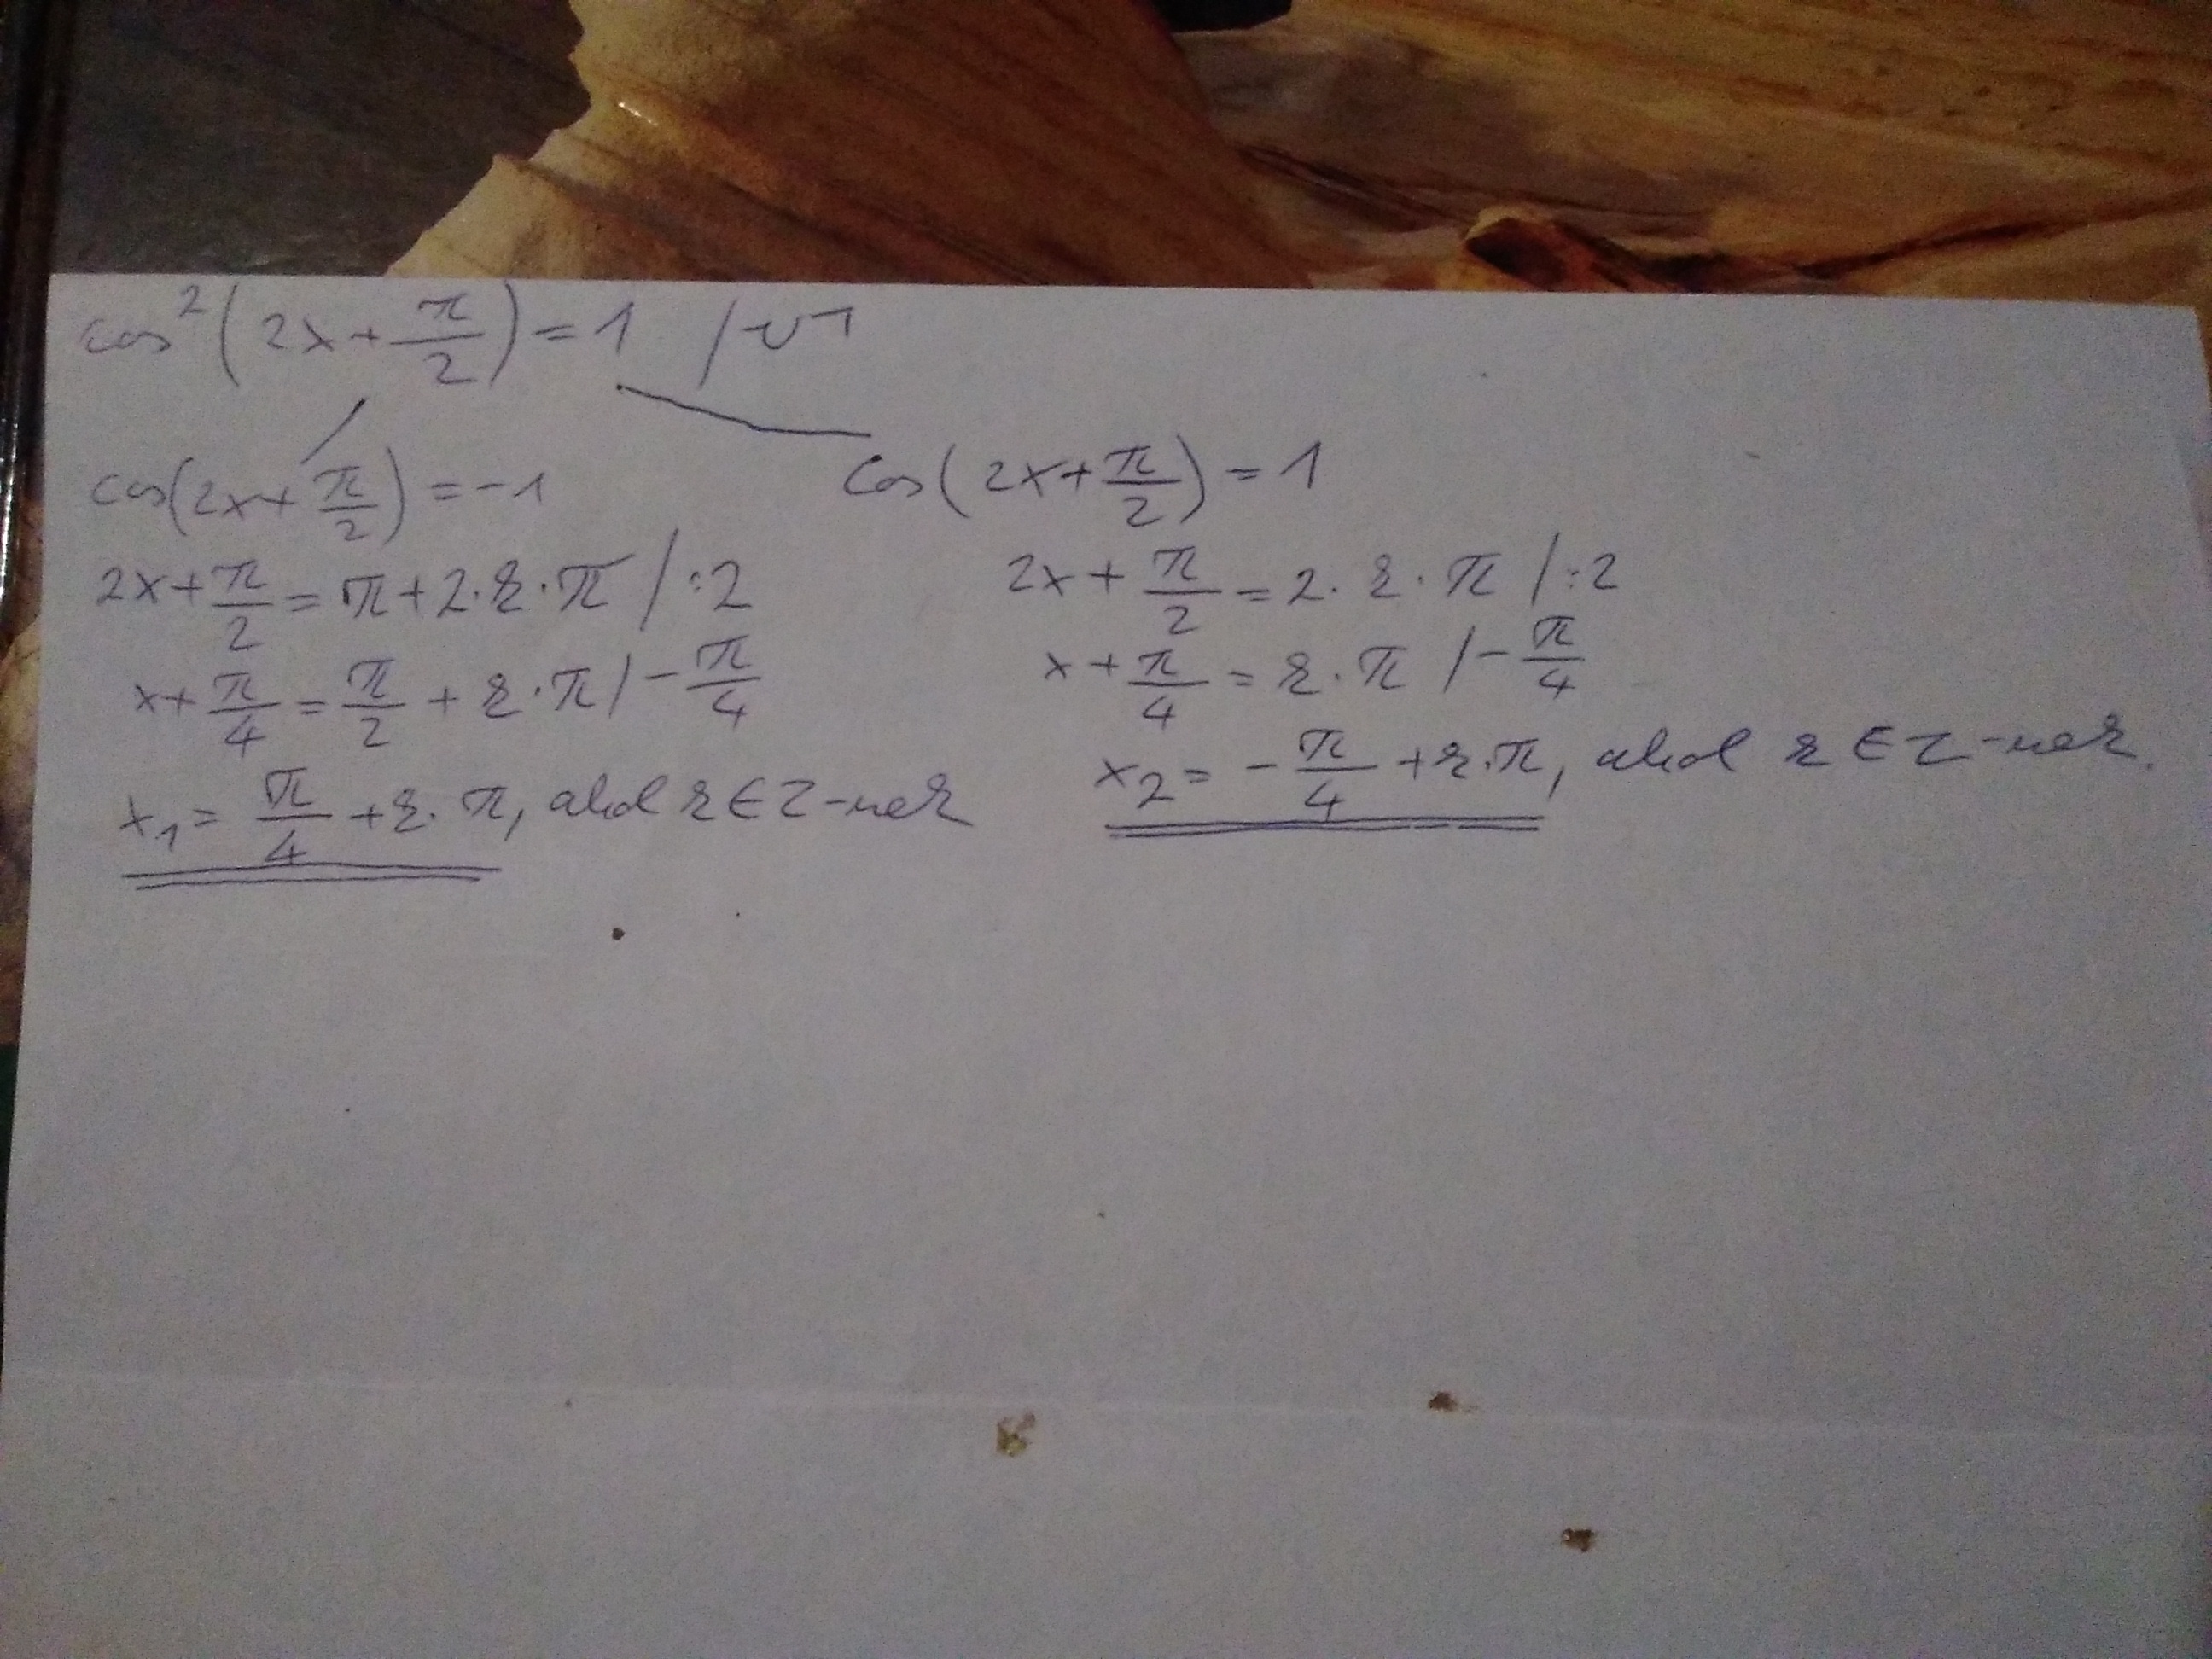 cos²(2x+π/2)=1 /√
cos(2x+π/2)=-1
2x+π/2=π+2·k·π /:2
x+π/4=π/2+k·π /-π/4
x₁=π/4+k·π, ahol k∈Z-nek
cos(2x+π/2)=1
2x+π/2=2·k·π /:2
x+π/4=k·π /-π/4
x₂=-π/4+k·π, ahol k∈Z-nek.